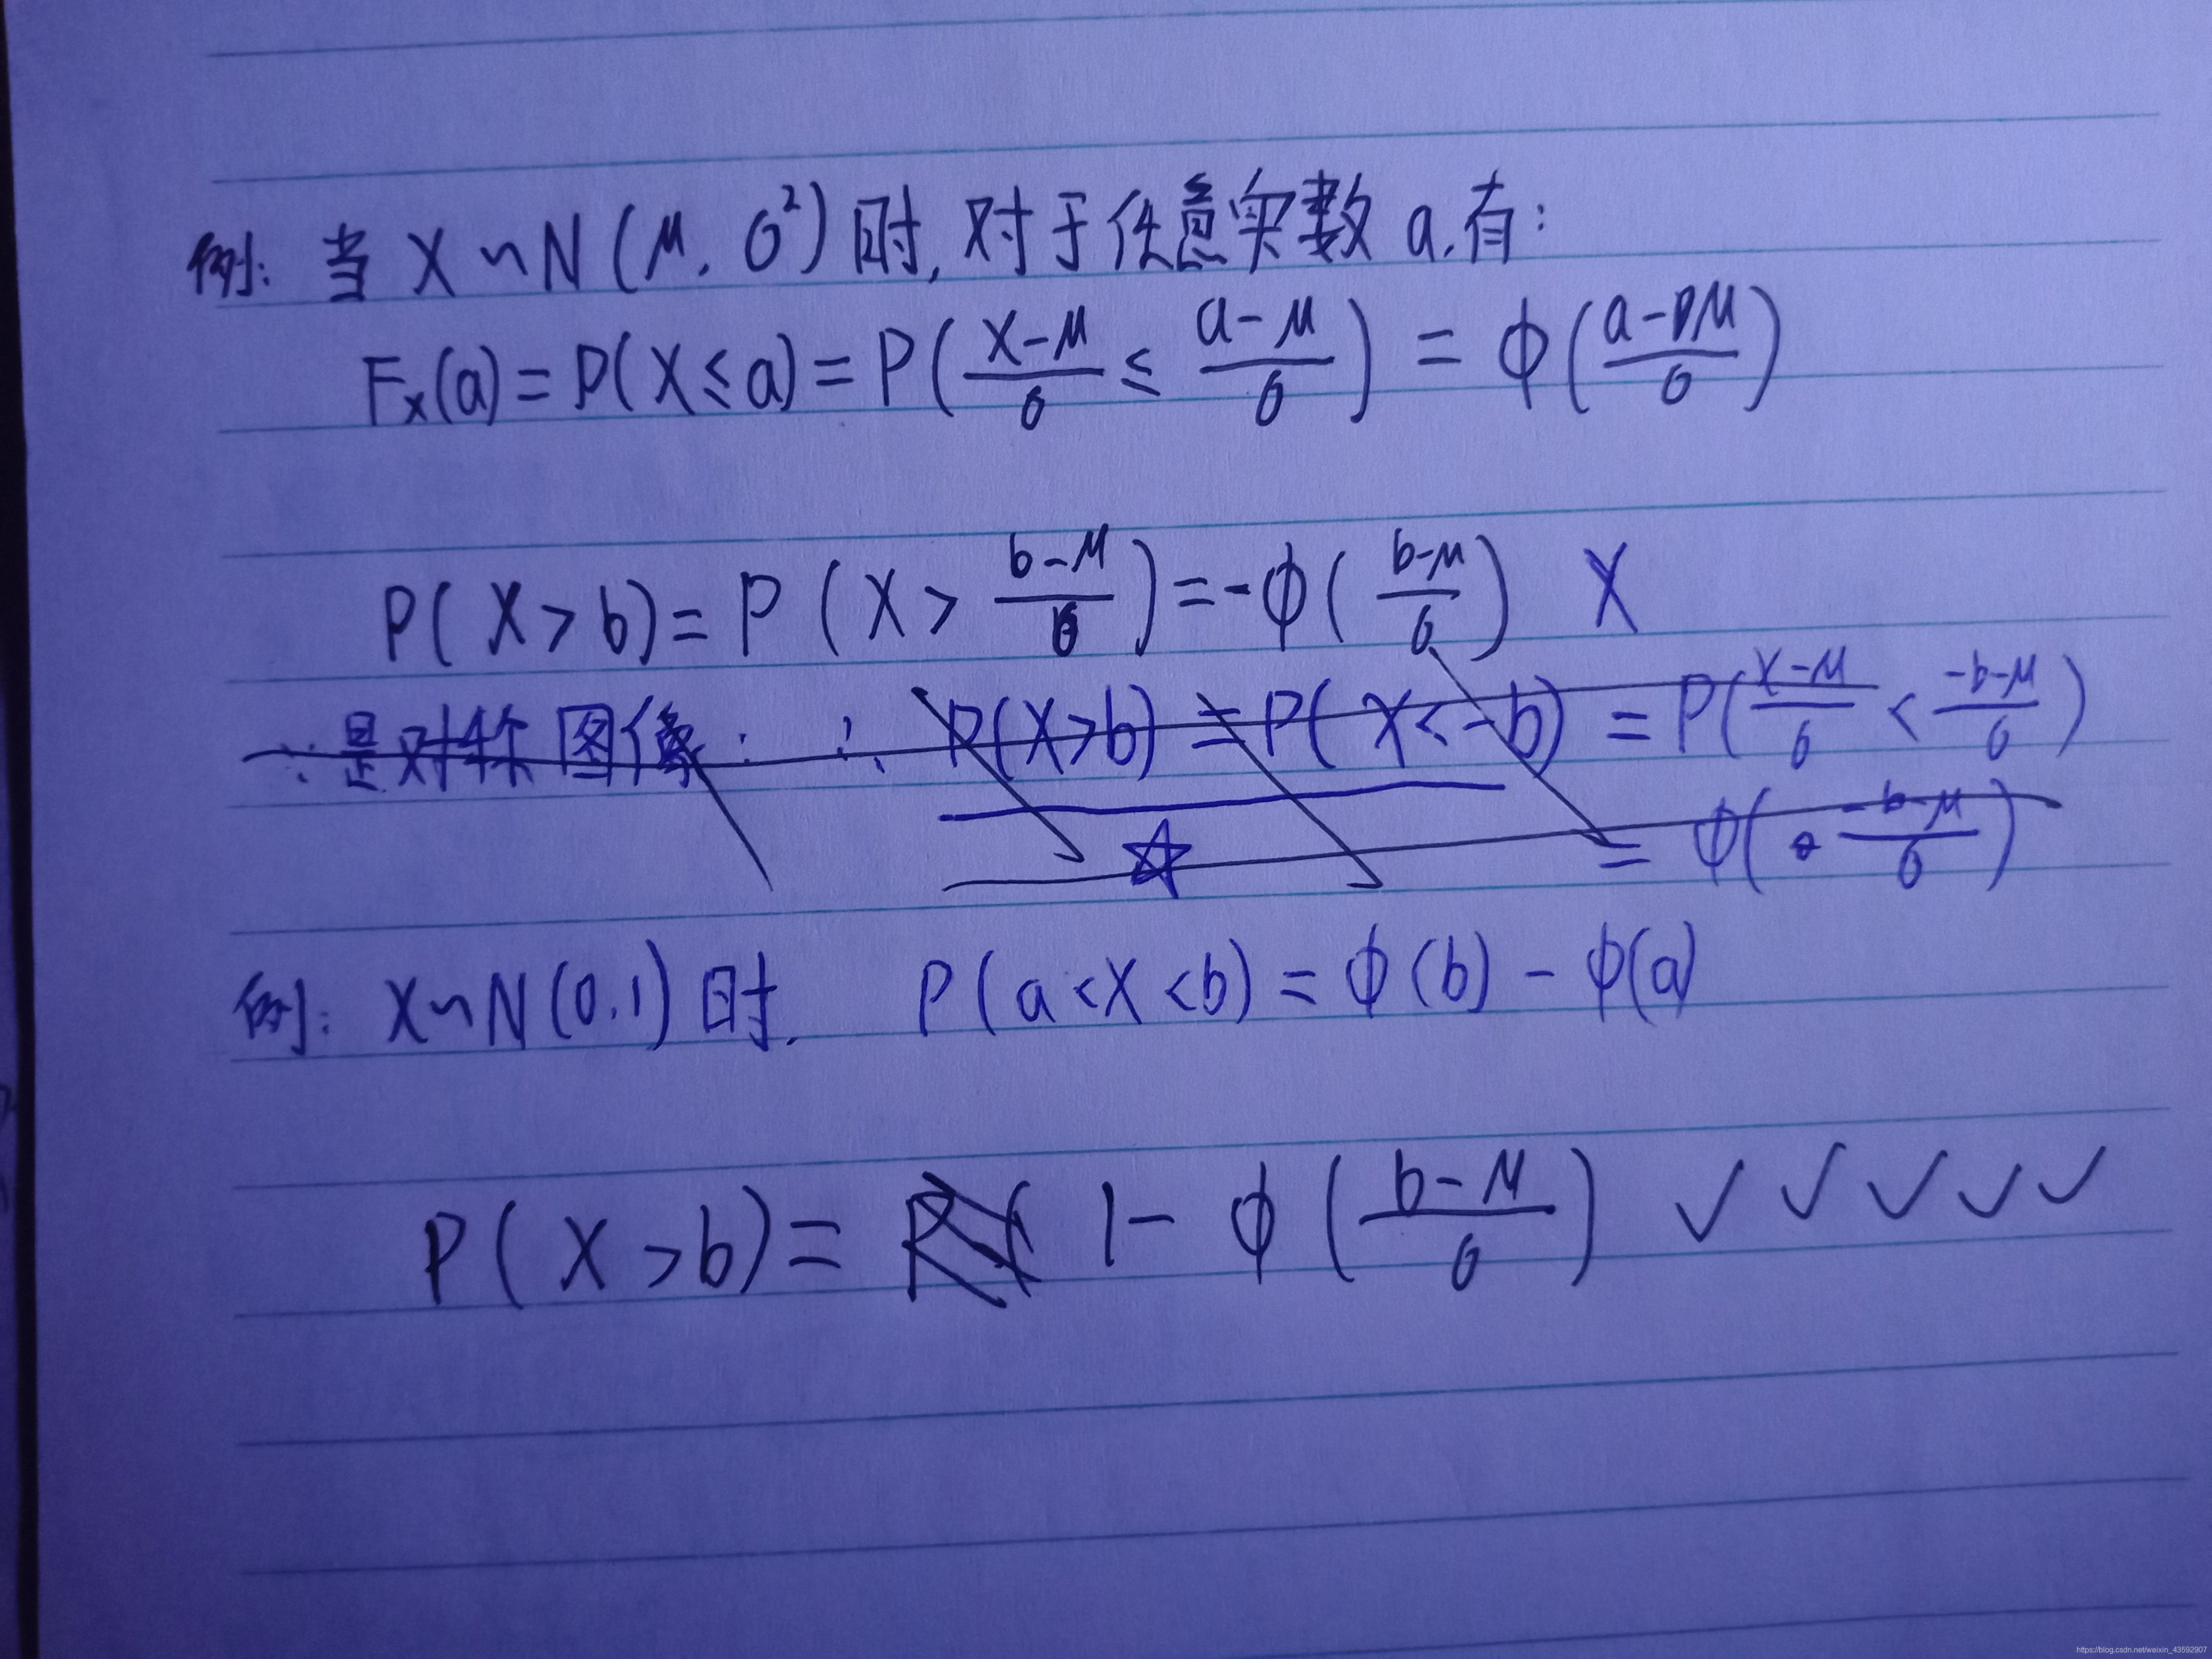 例: 当 X ~ N(μ, σ²) 时, 对于任意实数 a, 有:
Fx(a) = P(X ≤ a) = P((X-μ)/σ ≤ (a-μ)/σ) = Φ((a-μ)/σ)
P(X > b) = P(X > (b-μ)/σ) = -Φ((b-μ)/σ) X
∵ 是对称图像 ∴ P(X>b) = P(X<-b) = P((X-μ)/σ < (-b-μ)/σ)
☆ = Φ((-b-μ)/σ)
例: X ~ N(0,1) 时, P(a<X<b) = Φ(b) - Φ(a)
P(X > b) = 1 - Φ((b-μ)/σ) ✓ ✓ ✓ ✓ ✓
https://blog.csdn.net/weixin_43592907